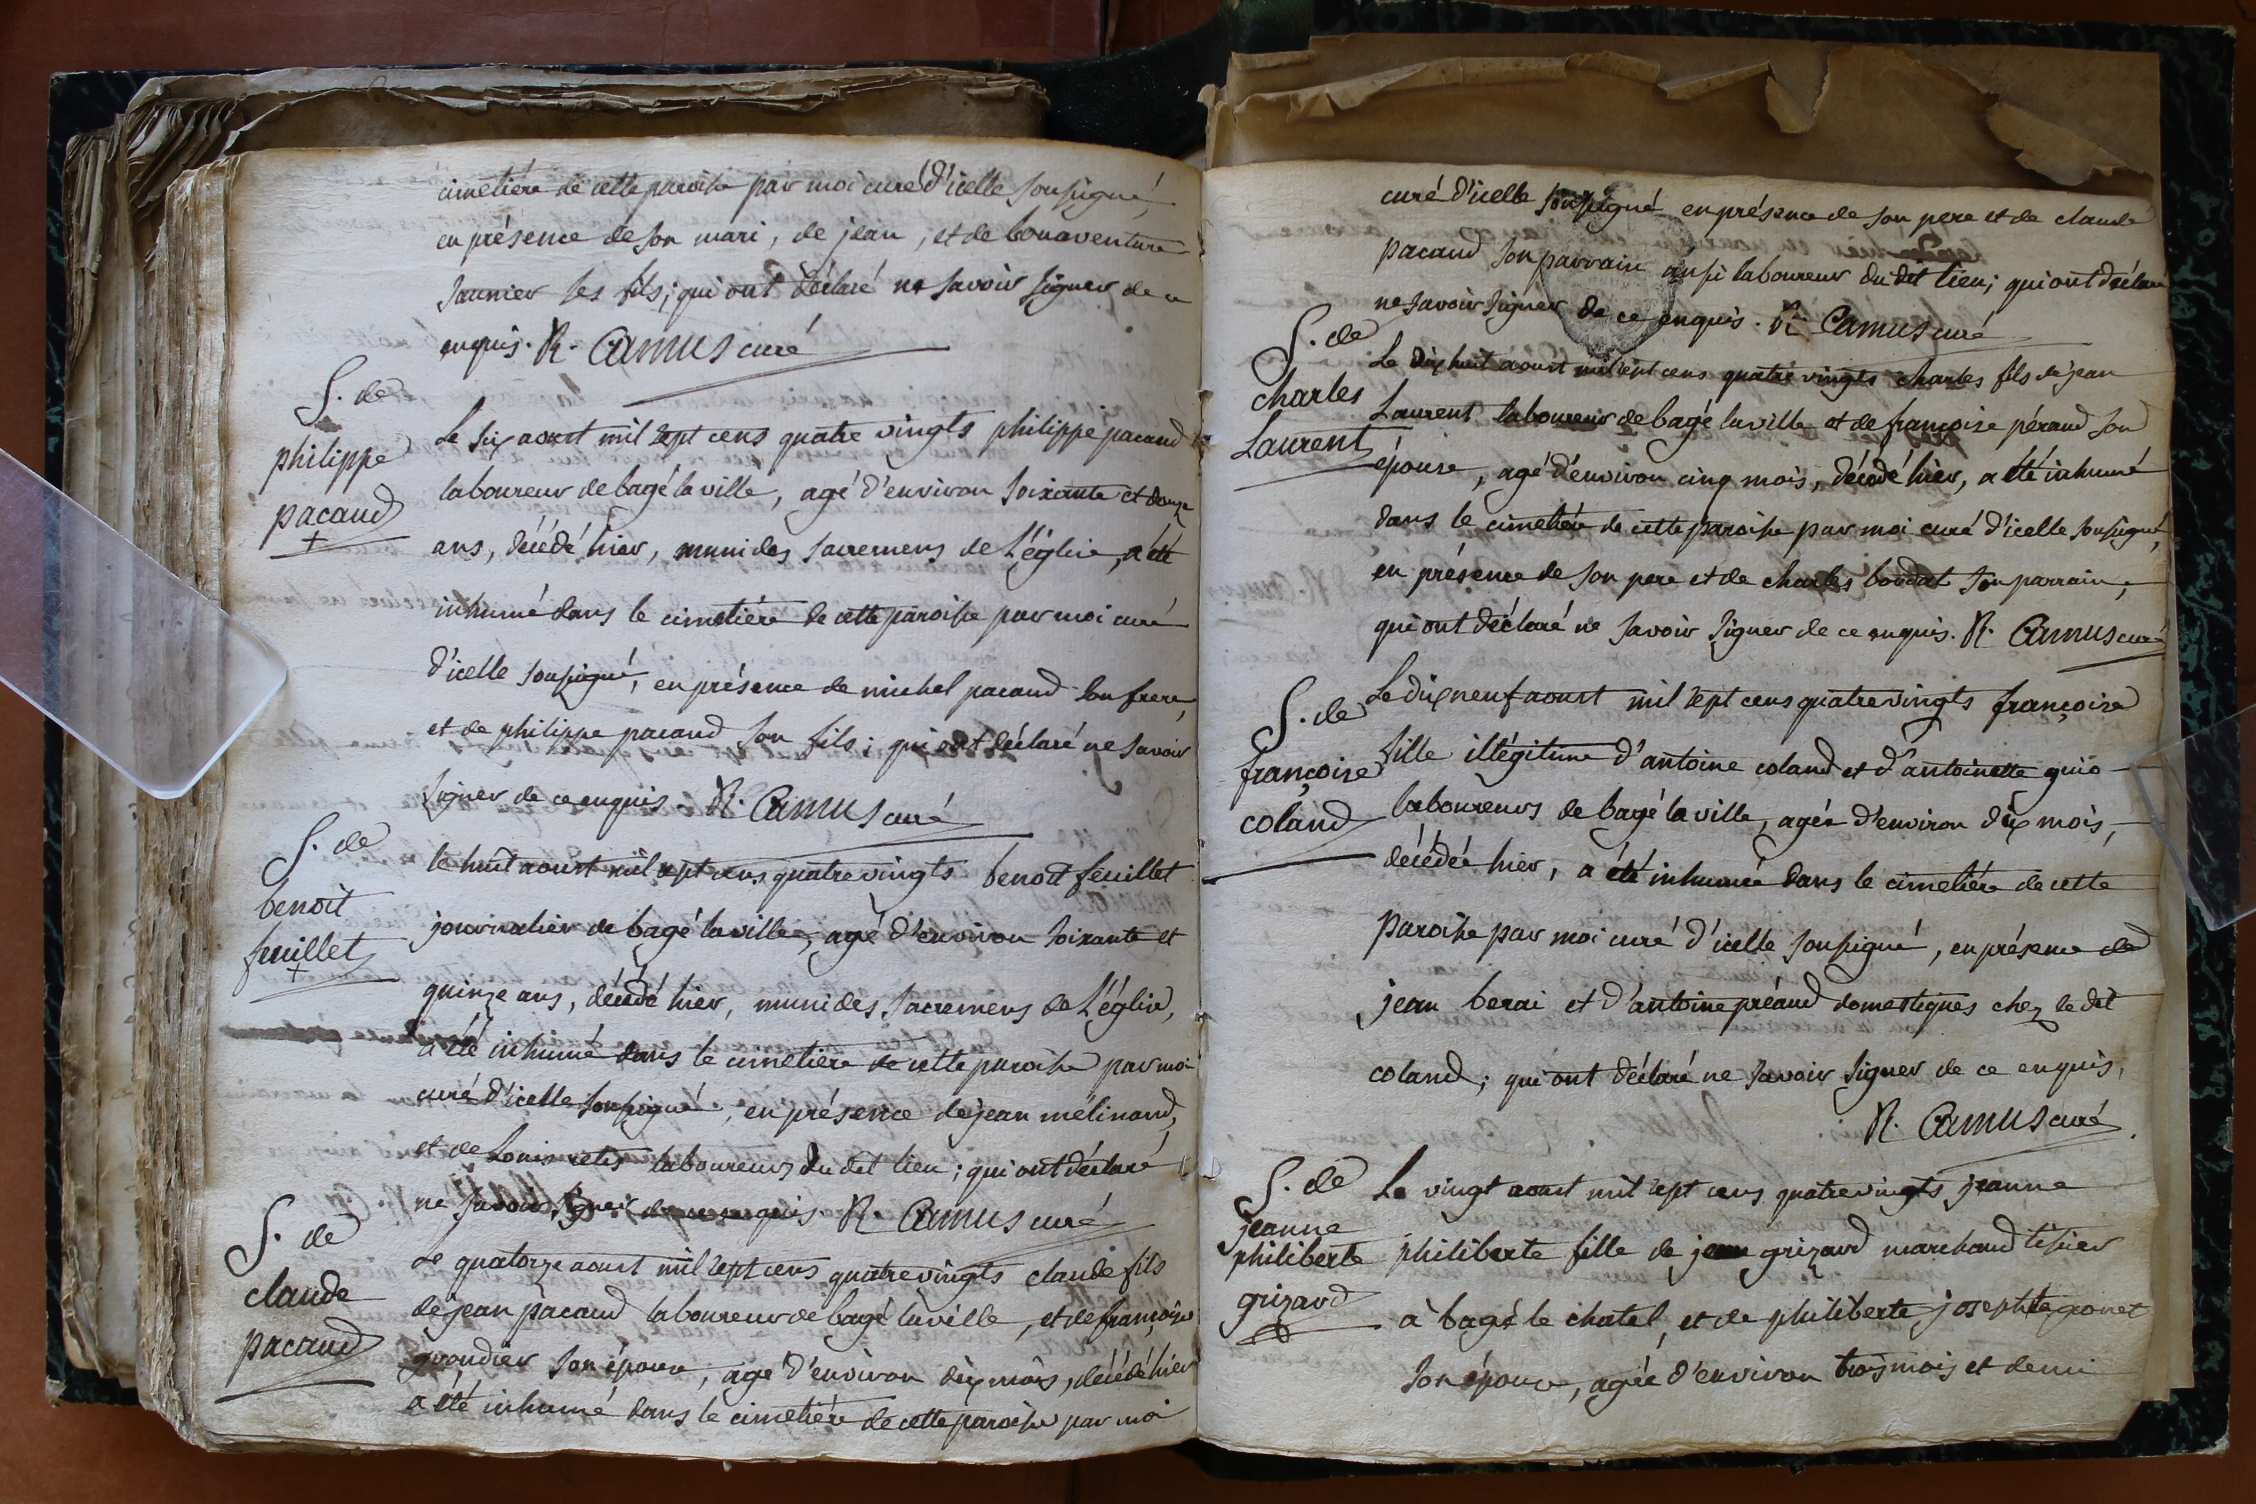 cimetiére de cette paroisse par moi curé d'icelle soussigné,
en présence de son mari, de jean, et de bonaventure
saunier ses fils; qui ont déclaré ne savoir signer de ce
enquis. R. Camus curé
S. de
philippe
pacaud
Le six aoust mil sept cens quatre vingts philippe pacaud
laboureur de bagé la ville, agé d'environ soixante et douze
ans, décédé hier, muni des sacremens de L'église, a été
inhumé dans le cimetiére de cette paroisse par moi curé
d'icelle soussigné, en présence de michel pacaud son frere,
et de philippe pacaud son fils; qui ont déclaré ne savoir
signer de ce enquis. R. Camus curé
S. de
benoit
feuillet
le huit aoust mil sept cens quatre vingts benoit feuillet
journalier de bagé la ville, agé d'environ soixante et
quinze ans, décédé hier, muni des sacremens de L'église,
a été inhumé dans le cimetiére de cette paroisse par moi
curé d'icelle soussigné, en présence de jean mélinand,
et de Louis laboureurs du dit lieu; qui ont déclaré
ne savoir signer de ce enquis R. Camus curé
S. de
claude
pacaud
Le quatorze aoust mil sept cens quatre vingts claude fils
de jean pacaud laboureur de bagé la ville, et de françoise
grondier son épouse, agé d'environ dix mois, décédé hier
a été inhumé dans le cimetiére de cette paroisse par moi
curé d'icelle soussigné en présence de son pere et de claude
pacaud son parrain aussi laboureur du dit lieu; qui ont déclaré
ne savoir signer de ce enquis. R. Camus curé
S. de
charles
Laurent
Le dix huit aoust mil sept cens quatre vingts charles fils de jean
Laurent laboureur de bagé la ville et de françoise péraud son
épouse, agé d'environ cinq mois, décédé hier, a été inhumé
dans le cimetiére de cette paroisse par moi curé d'icelle soussigné,
en présence de son pere et de charles boudat son parrain,
qui ont déclaré ne savoir signer de ce enquis. R. Camus curé
S. de
françoise
coland
Le dix neuf aoust mil sept cens quatre vingts françoise
fille illégitime d'antoine coland et d'antoinette guio
laboureurs de bagé la ville, agée d'environ dix mois,
décédée hier, a été inhumée dans le cimetiére de cette
paroisse par moi curé d'icelle soussigné, en présence de
jean berai et d'antoine préaud domestiques chez le dit
coland; qui ont déclaré ne savoir signer de ce enquis,
R. Camus curé
S. de
jeanne
philiberte
grizard
Le vingt aoust mil sept cens quatre vingts jeanne
philiberte fille de jean grizard marchand tissier
à bagé le chatel, et de philiberte josephte gonet
son épouse, agée d'environ trois mois et demi